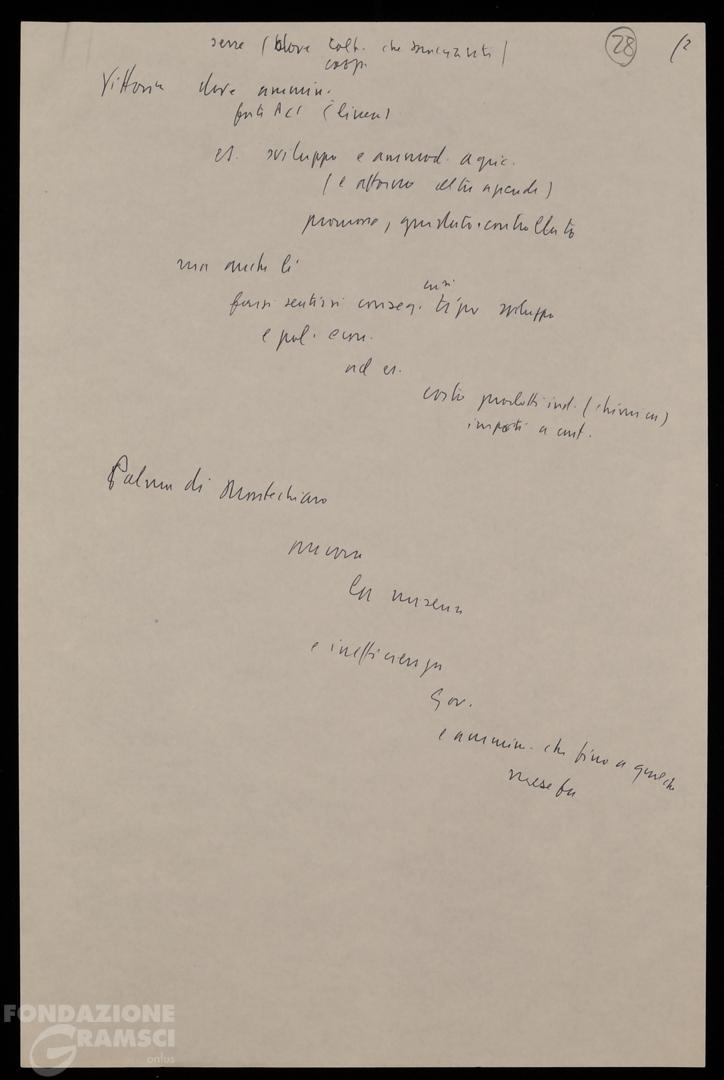 serre (dove colt. che
coop.
28
(2
Vittoria dove ammin.
forti PCI (
es. sviluppo e ammod. agric.
(e attorno altre aziende)
promosso, guidato, controllato
ma anche lì
farsi sentire conseg. crisi tipo sviluppo
e pol. econ.
ad es.
costo prodotti ind. (chimici)
a cont.
Palma di Montechiaro
ancora
la miseria
e inefficienza
Gov.
e ammin. che fino a qualche
mese fa
FONDAZIONE
GRAMSCI
onlus